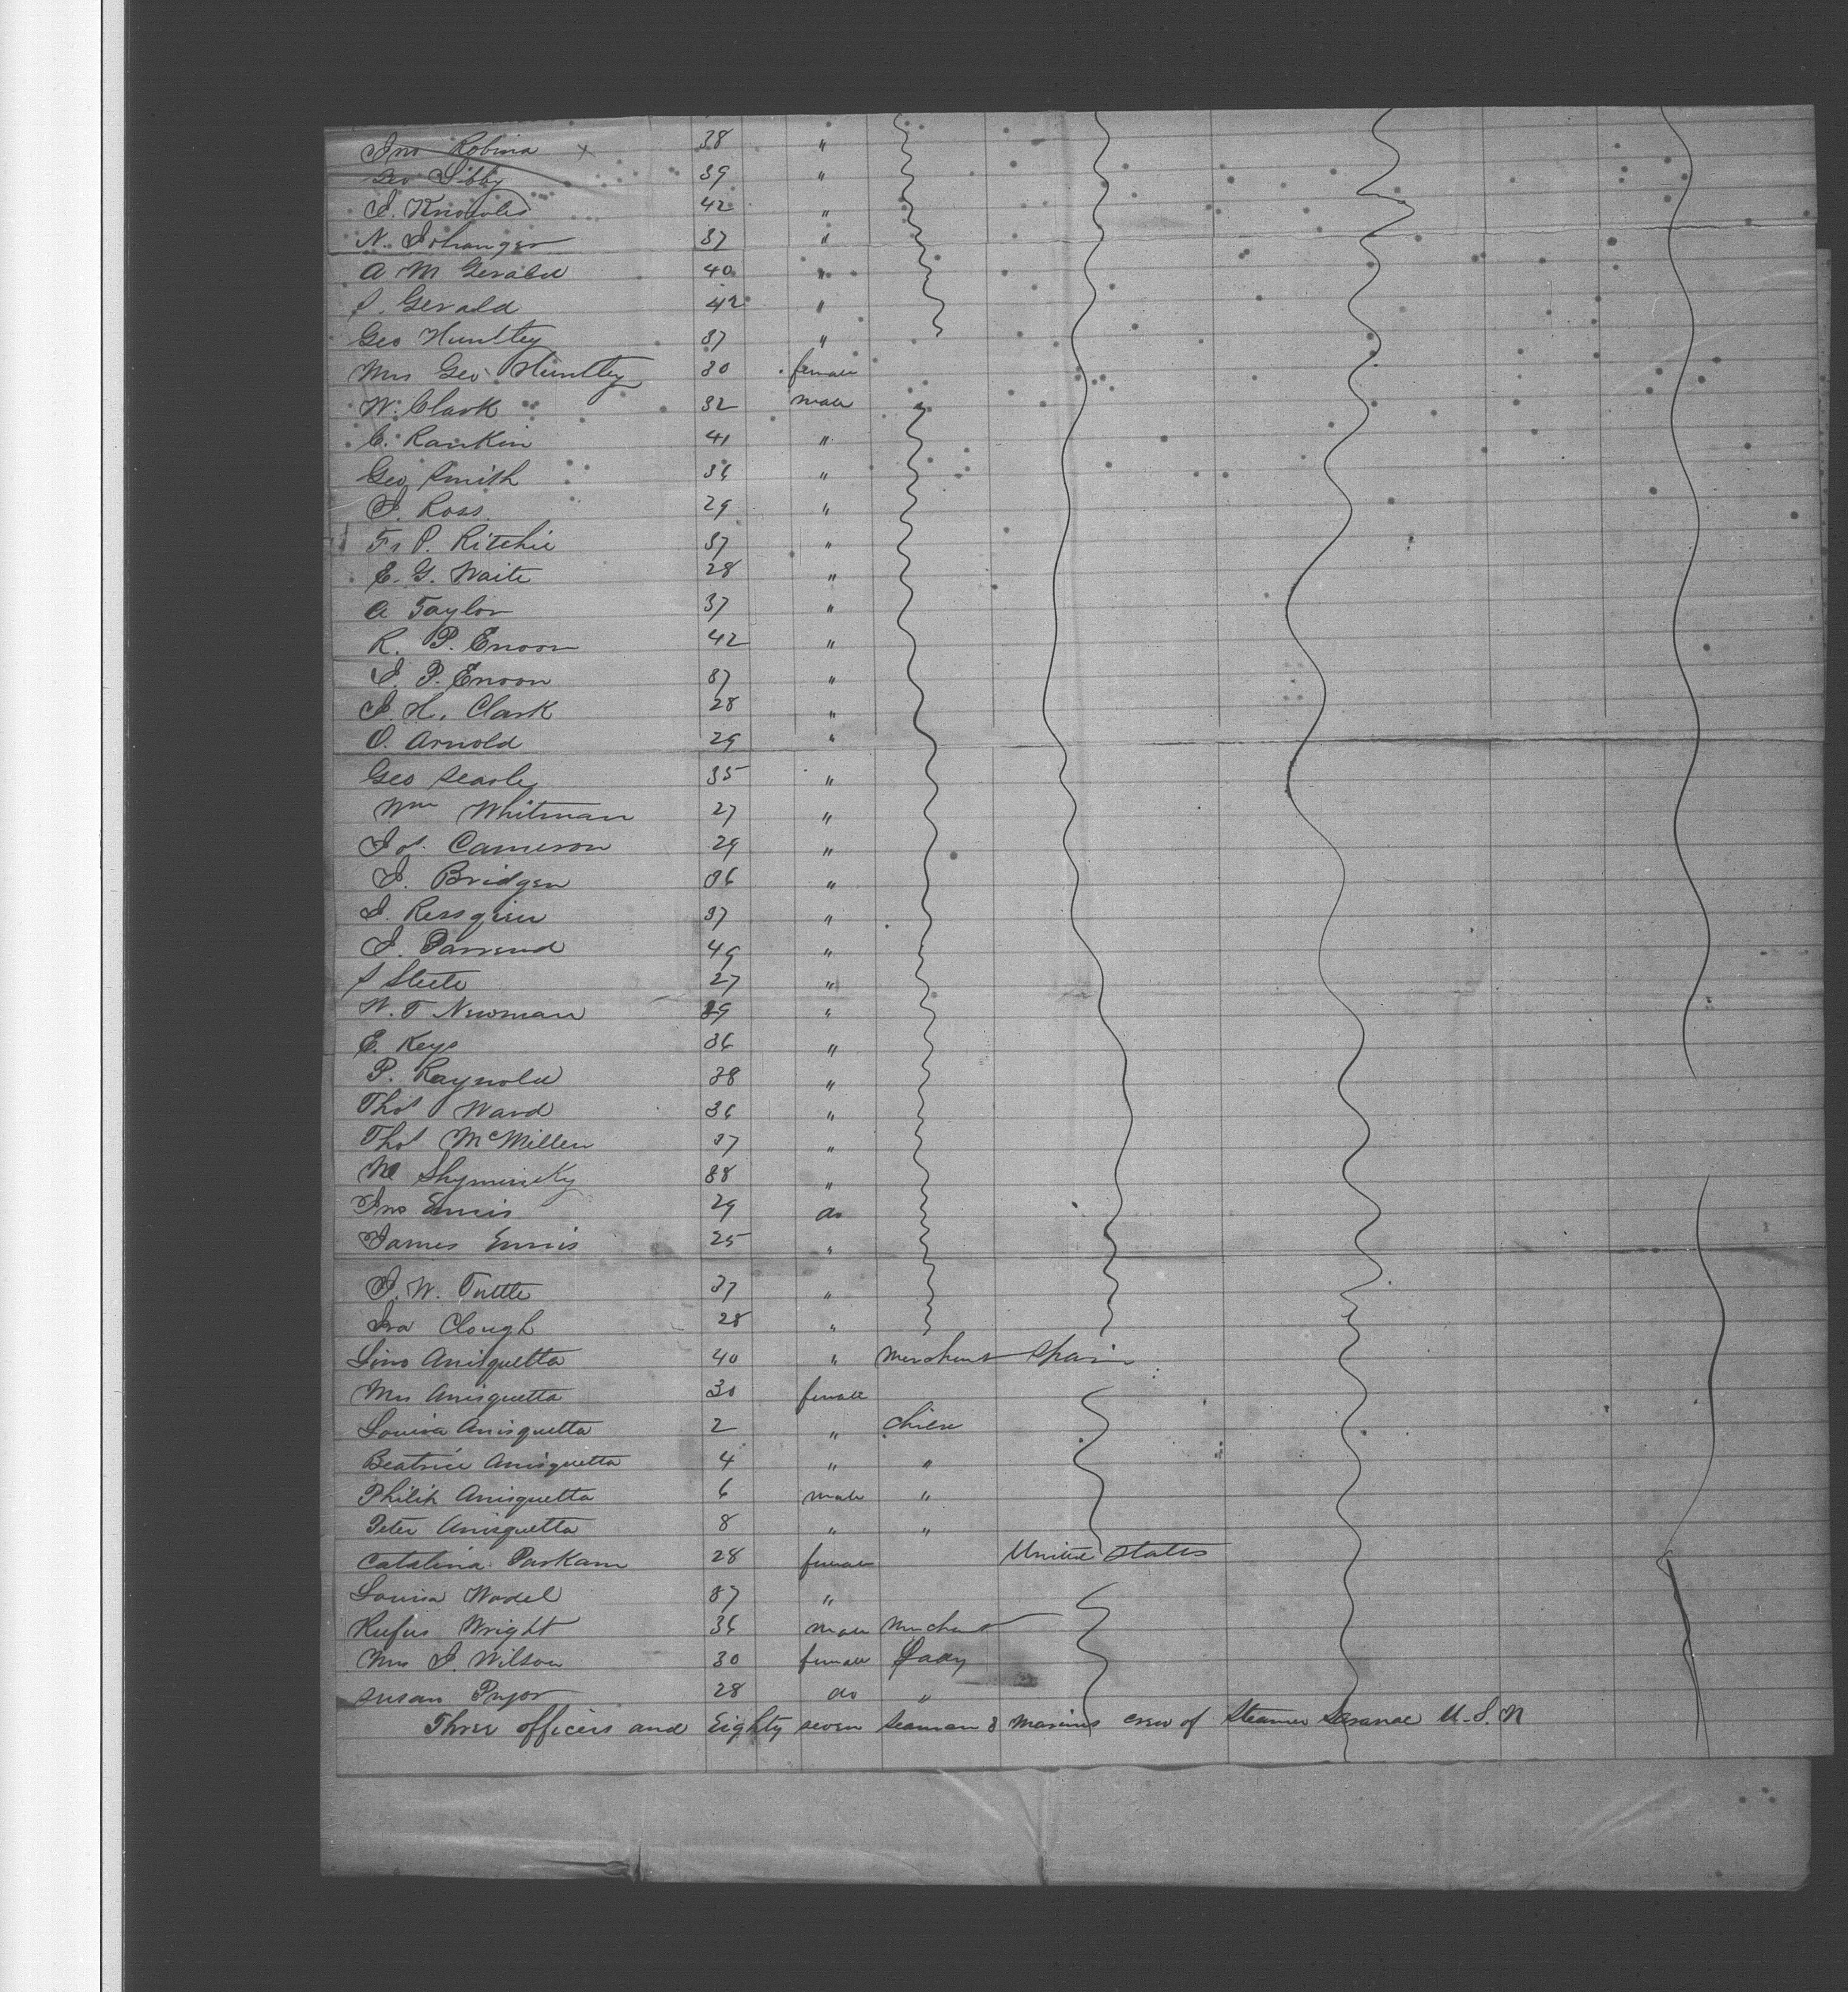 Jno Robina x 38 "
Geo Libby 39 "
J. Knowles 42 "
N. Johanger 37 "
A M Gerald 40 "
S. Gerald 42 "
Geo Huntley 37 "
Mrs Geo Huntley 30 female
W. Clark 32 male
C. Rankin 41 "
Geo Smith 36 "
J. Ross 29 "
Fr P. Ritchie 37 "
E. G. Waite 28 "
A Taylor 37 "
R. P. Enoon 42 "
J. P. Enoon 37 "
J. H. Clark 28 "
O. Arnold 29 "
Geo Searley 35 "
Wm Whitman 27 "
Jos. Cameron 29 "
J. Bridgen 36 "
J. Ressguiu 37 "
J. Parrend 49 "
S Steete 27 "
W. T Newman 39 "
E. Keys 36 "
P. Raynold 38 "
Thos Ward 36 "
Thos McMillen 37 "
M Shyminsky 38 "
Jno Ennis 29 do
James Ennis 25 "
J. W. Tuttle 37 "
Ira Clough 28 "
Lino Anisquetta 40 " Merchant Spain
Mrs Anisquetta 30 female
Louisa Anisquetta 2 " Child
Beatrice Anisquetta 4 " "
Philip Anisquetta 6 male "
Peter Anisquetta 8 " "
Catalina Parkam 28 female United States
Louisa Wadel 37 "
Rufus Wright 36 male Merchant
Mrs J. Wilson 30 female Lady
Susan Pryor 28 do "
Three officers and Eighty seven Seaman & Marines crew of Steamer Saranac U.S.N